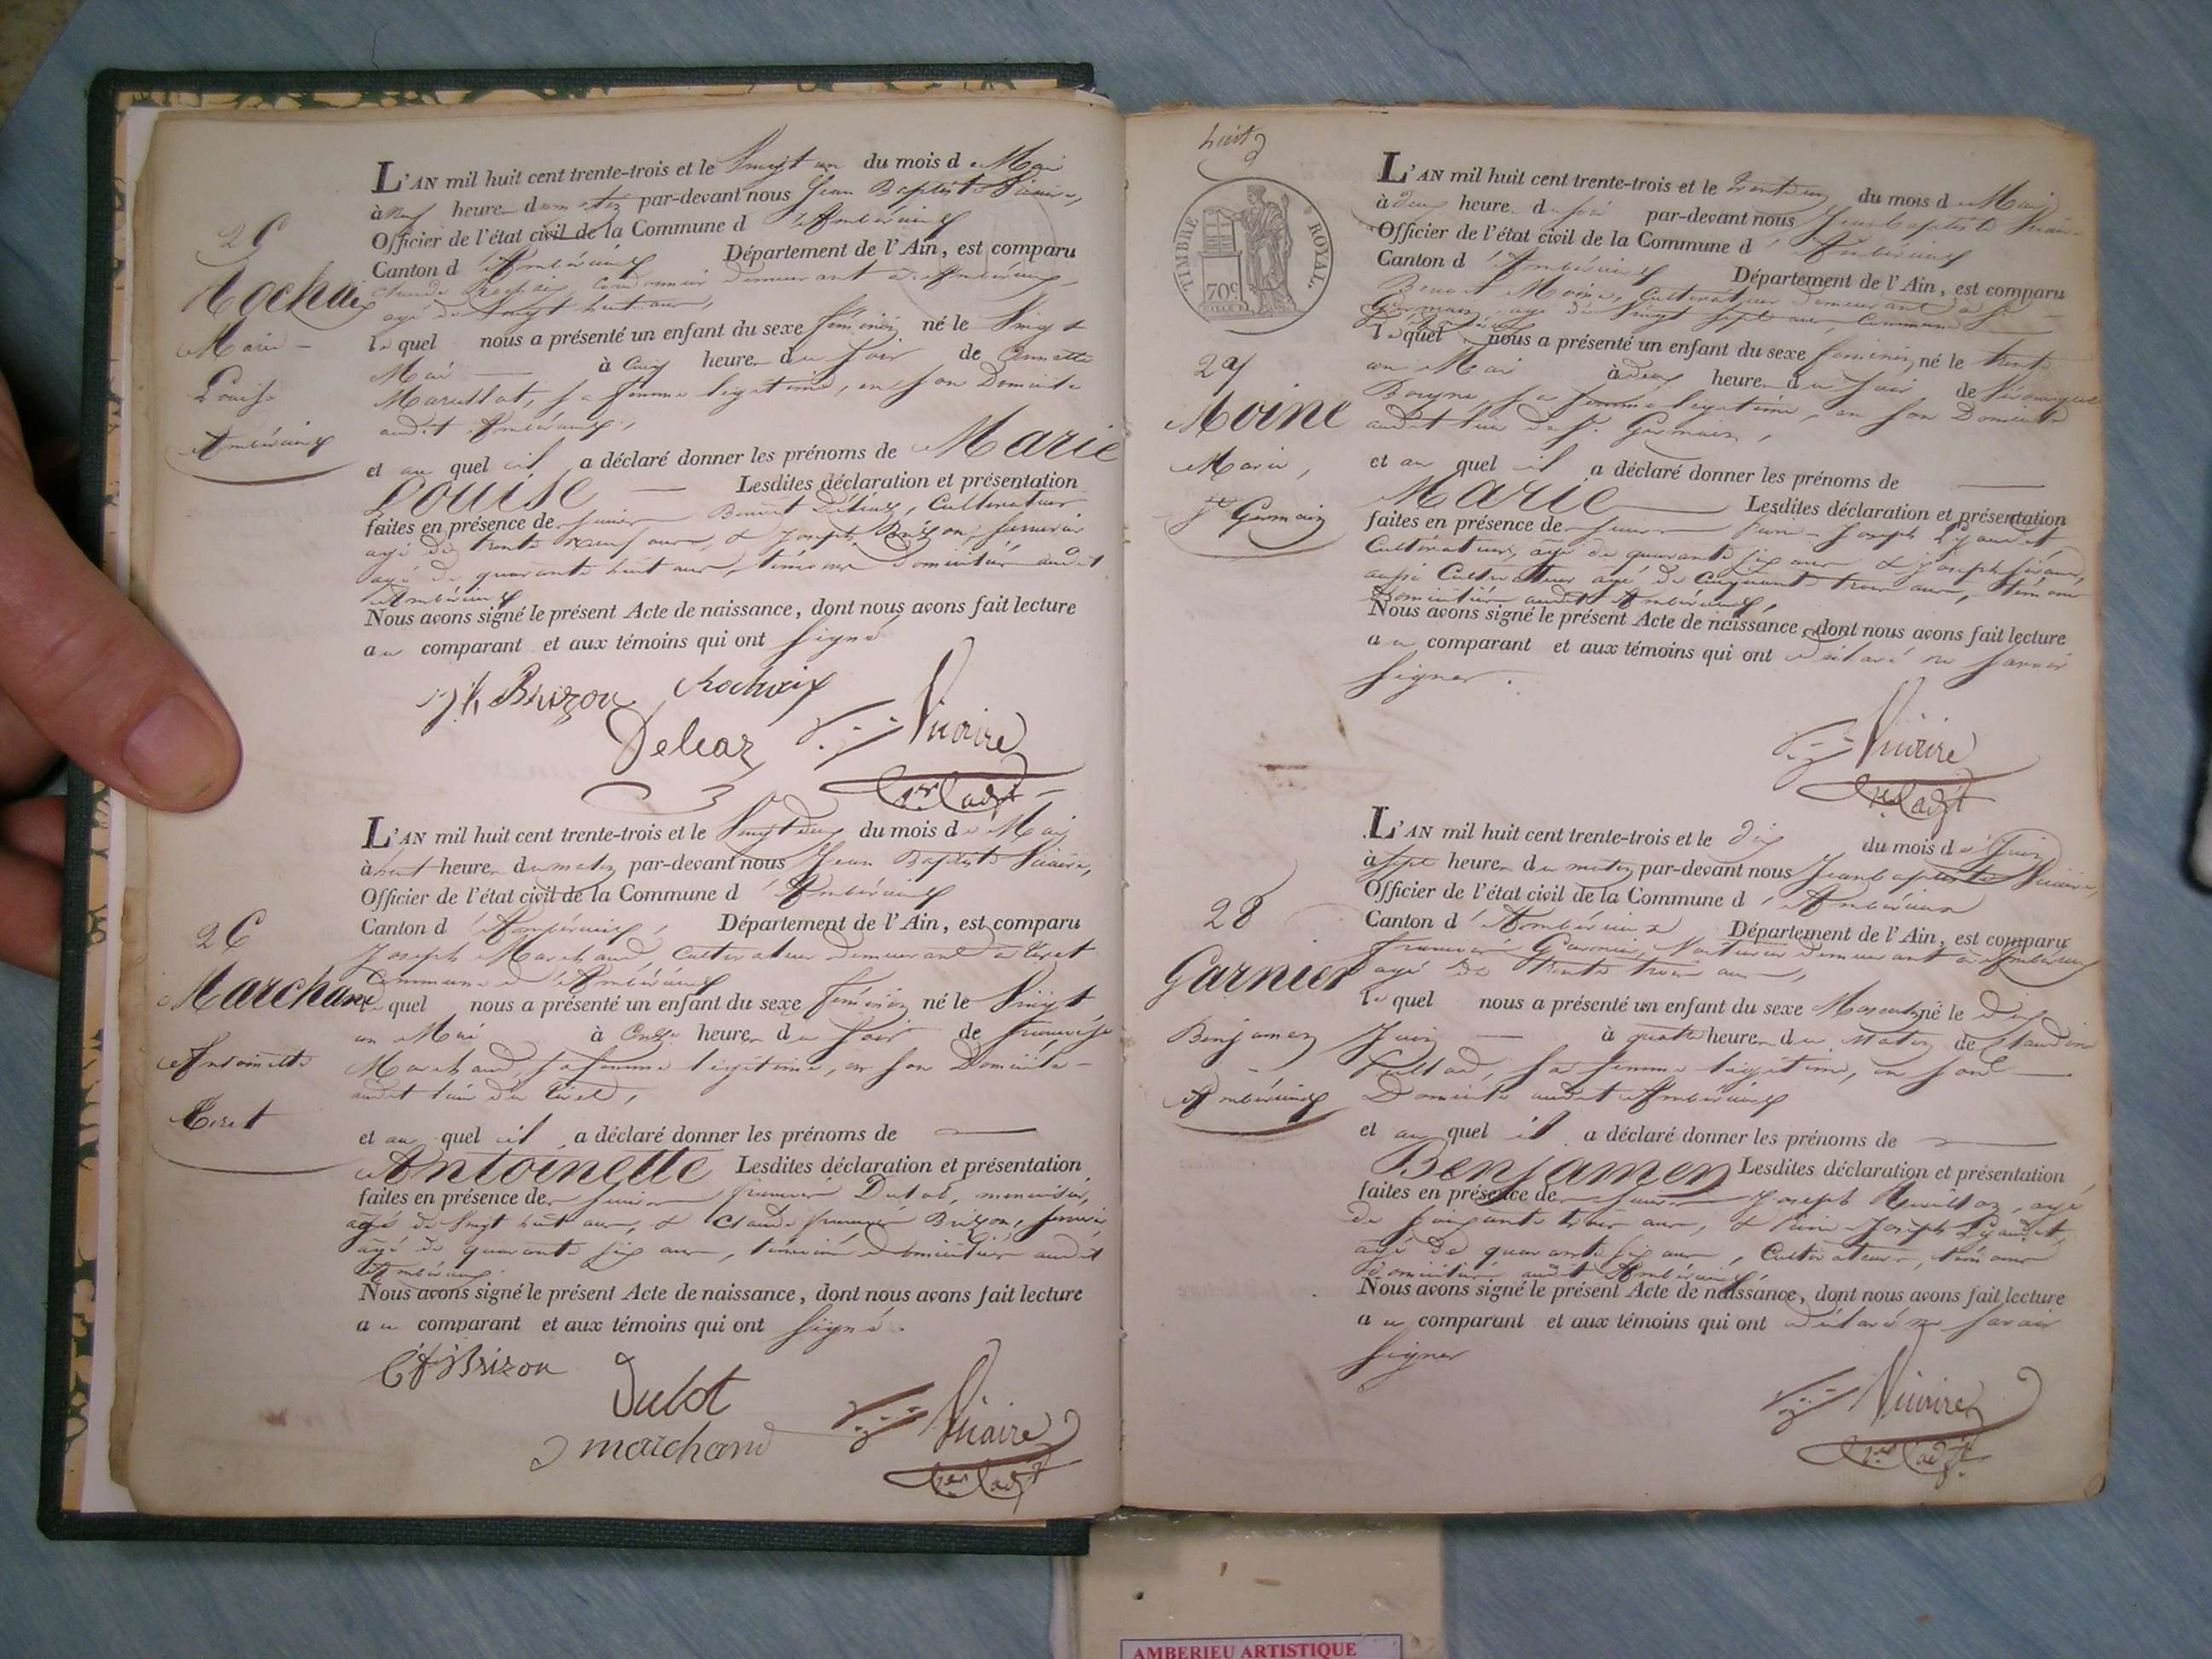 25
Rochaix
Marie
Louise
Ambérieux
L'AN mil huit cent trente-trois et le Vingt un du mois de Mai
à neuf heures du matin par-devant nous Jean Baptiste Vicaire,
Officier de l'état civil de la Commune d'Ambérieux
Canton d'Ambérieux Département de l'Ain, est comparu
Claude Rochaix, Cordonnier demeurant à Ambérieux
agé de Vingt huit ans,
lequel nous a présenté un enfant du sexe féminin né le Vingt
Mai à Cinq heures du soir de Annette
sa femme légitime, en son Domicile
audit Ambérieux,
et auquel il a déclaré donner les prénoms de Marie
Louise Lesdites déclaration et présentation
faites en présence de Benoit Cultivateur
agé de trente neuf ans, & Joseph Brizon,
agé de quarante huit ans, témoins domiciliés audit
Ambérieux
Nous avons signé le présent Acte de naissance, dont nous avons fait lecture
au comparant et aux témoins qui ont signé
Jh Brizon Rochaix
Vicaire
1er adjt
26
Marchand
Antoinette
Tiret
L'AN mil huit cent trente-trois et le Vingt deux du mois de Mai
à huit heures du matin par-devant nous Jean Baptiste Vicaire,
Officier de l'état civil de la Commune d'Ambérieux
Canton d'Ambérieux, Département de l'Ain, est comparu
Joseph Marchand, Cultivateur demeurant à Tiret
Commune d'Ambérieux
lequel nous a présenté un enfant du sexe féminin né le Vingt
un Mai à Onze heures du soir de françoise
Marchand, sa femme légitime, en son Domicile
audit lieu de Tiret,
et auquel il a déclaré donner les prénoms de
Antoinette Lesdites déclaration et présentation
faites en présence de françois Dulot, menuisier,
agé de Vingt huit ans, & Claude françois Brizon,
agé de quarante six ans, témoins domiciliés audit
Ambérieux
Nous avons signé le présent Acte de naissance, dont nous avons fait lecture
au comparant et aux témoins qui ont signé.
Brizon
Dulot
marchand
Vicaire
1er adjt
huit
TIMBRE ROYAL
70c
27
Moine
Marie,
St Germain
L'AN mil huit cent trente-trois et le trente un du mois de Mai
à deux heures du soir par-devant nous Jean baptiste Vicaire
Officier de l'état civil de la Commune d'Ambérieux
Canton d'Ambérieux Département de l'Ain, est comparu
Benoit Moine, Cultivateur demeurant à St
Germain, agé de Vingt sept ans, Commune
lequel nous a présenté un enfant du sexe féminin, né le trente
un Mai à deux heures du soir de Véronique
sa femme légitime, en son Domicile
audit lieu de St Germain,
et auquel il a déclaré donner les prénoms de
Marie Lesdites déclaration et présentation
faites en présence de Joseph
Cultivateur, agé de quarante six ans & Joseph
aussi Cultivateur agé de Cinquante trois ans, témoins
domiciliés audit Ambérieux,
Nous avons signé le présent Acte de naissance, dont nous avons fait lecture
au comparant et aux témoins qui ont déclaré ne savoir
signer.
Vicaire
1er adjt
28
Garnier
Benjamen
Ambérieux
L'AN mil huit cent trente-trois et le dix du mois de Juin
à sept heures du matin par-devant nous Jean baptiste Vicaire,
Officier de l'état civil de la Commune d'Ambérieux
Canton d'Ambérieux Département de l'Ain, est comparu
françois Garnier, demeurant à Ambérieux
agé de trente trois ans,
lequel nous a présenté un enfant du sexe Masculin né le dix
Juin à quatre heures du matin de Claudine
sa femme légitime, en son
Domicile audit Ambérieux
et auquel il a déclaré donner les prénoms de
Benjamen Lesdites déclaration et présentation
faites en présence de Joseph agé
de soixante trois ans, & Joseph
agé de quarante six ans, Cultivateurs, témoins
domiciliés audit Ambérieux,
Nous avons signé le présent Acte de naissance, dont nous avons fait lecture
au comparant et aux témoins qui ont déclaré ne savoir
signer
Vicaire
1er adjt
AMBERIEU ARTISTIQUE